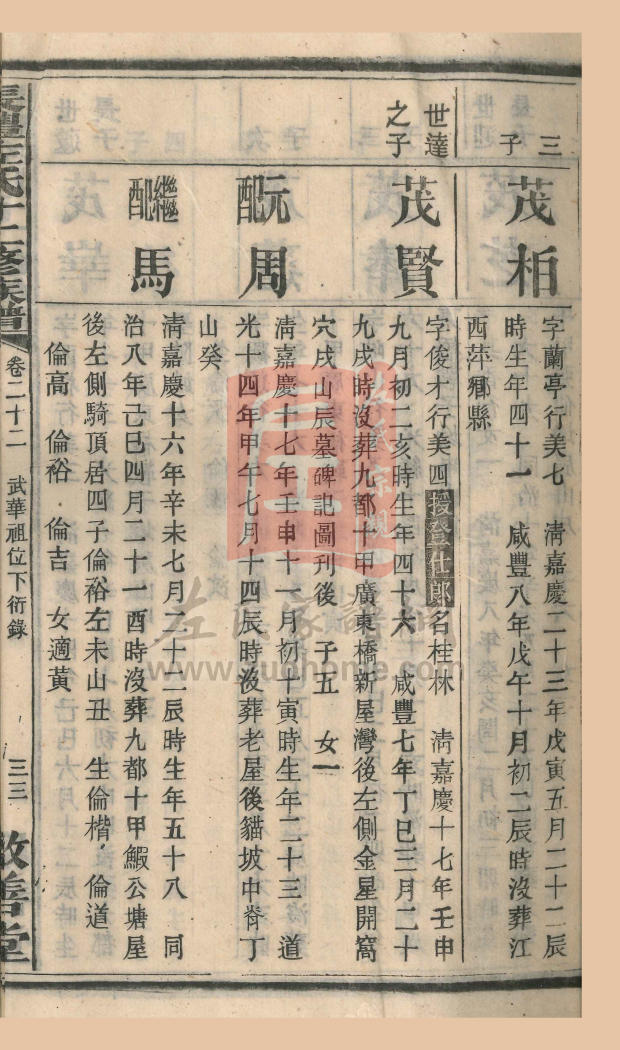 三子
茂栢
字蘭亭行美七　清嘉慶二十三年戊寅五月二十二辰
時生年四十一　咸豐八年戊午十月初二辰時沒葬江
西萍鄉縣
世達
之子
茂賢
字俊才行美四授登仕郎名桂林　清嘉慶十七年壬申
九月初二亥時生年四十六　咸豐七年丁巳三月二十
九戌時沒葬九都十甲廣東橋新屋灣後左側金星開窩
穴戌山辰墓碑記圖刊後　子五　女一
元配周
清嘉慶十七年壬申十一月初十寅時生年二十三　道
光十四年甲午七月十四辰時沒葬老屋後貓坡中脊丁
山癸
繼配馬
清嘉慶十六年辛未七月二十二辰時生年五十八　同
治八年己巳四月二十一酉時沒葬九都十甲鰕公塘屋
後左側騎頂居四子倫裕左未山丑　生倫楷　倫道
倫高　倫裕　倫吉　女適黃
左氏十二修族譜
卷二十二　武華祖位下衍錄　三三
敦善堂
左氏家譜網
www.zuohome.com